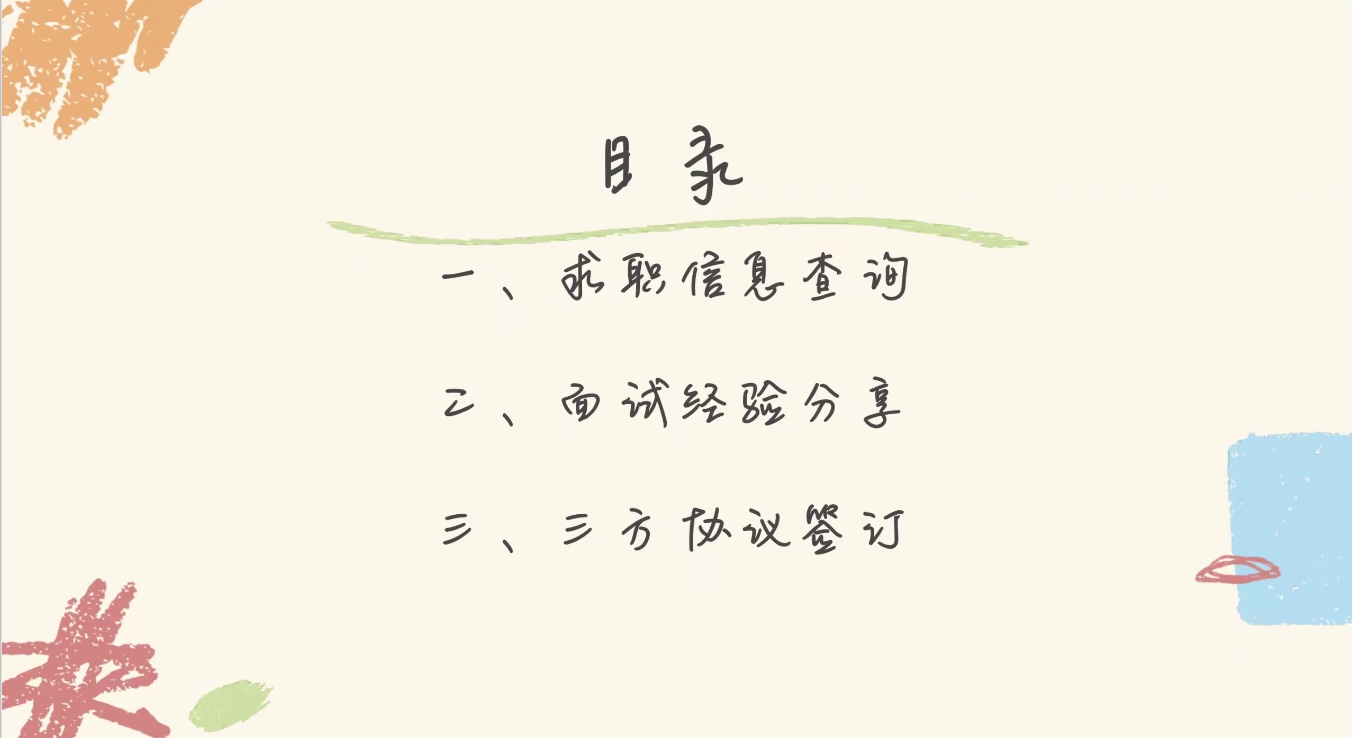 目录
一、求职信息查询
二、面试经验分享
三、三方协议签订